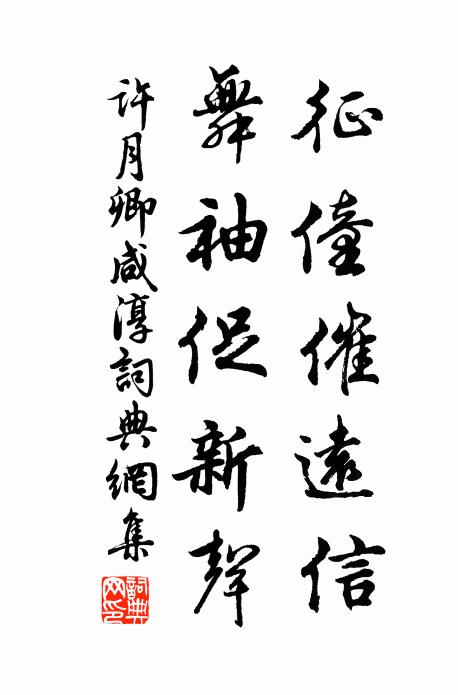 征僮催遠信
舞袖促新聲
許月卿咸淳詞典網集
詞典網印